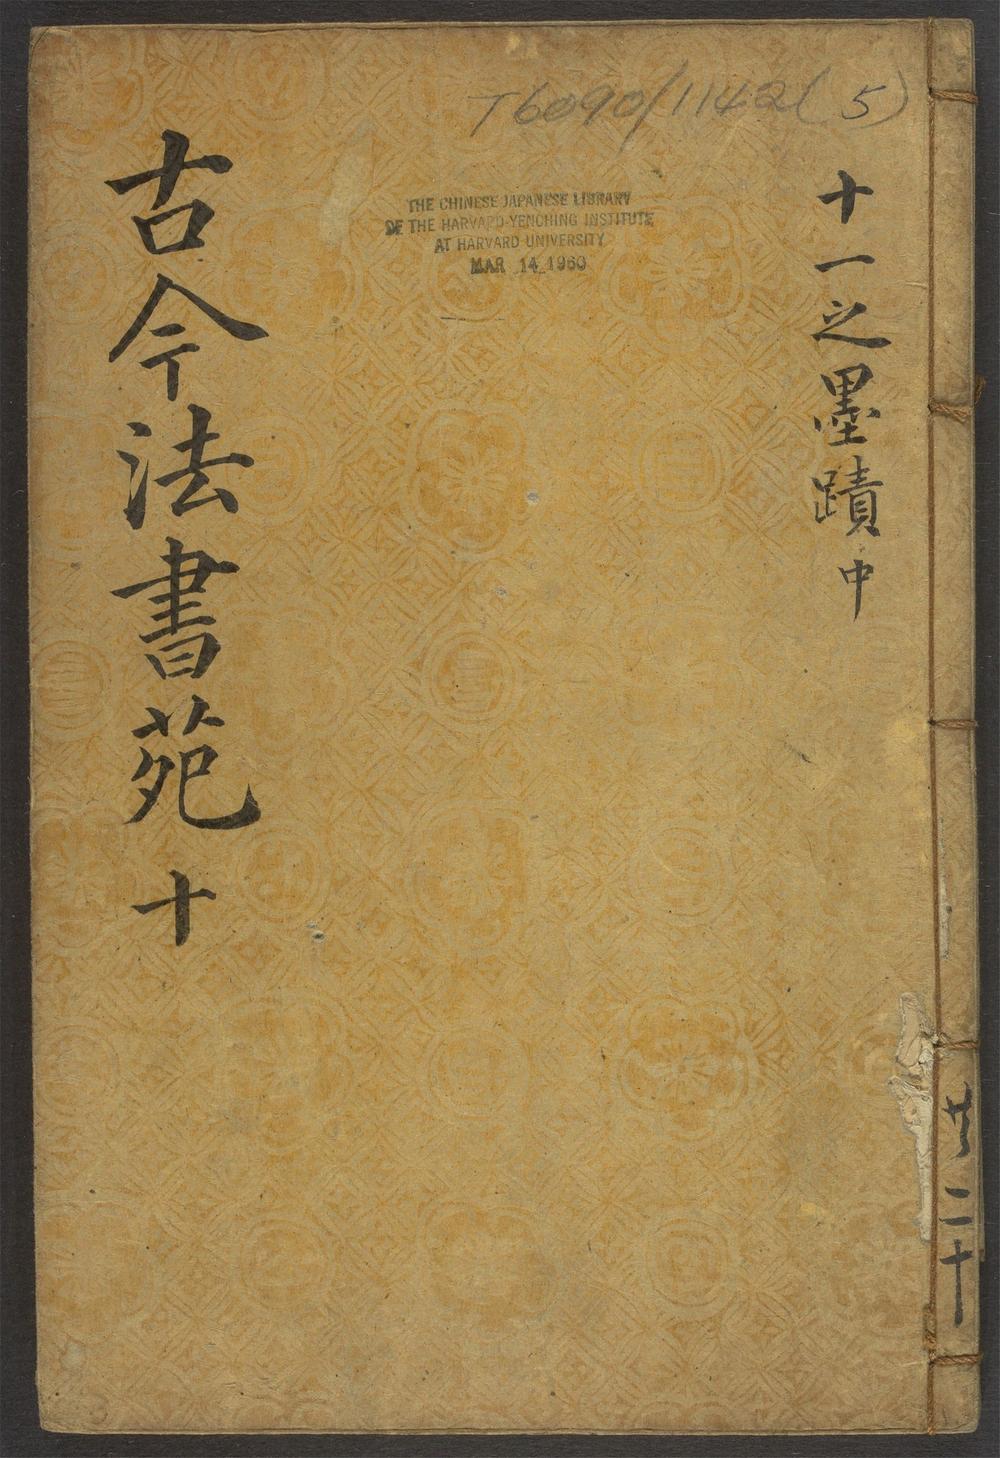 T6090/1142(5)
THE CHINESE JAPANESE LIBRARY
OF THE HARVARD-YENCHING INSTITUTE
AT HARVARD UNIVERSITY
MAR 14 1960
十一之墨蹟中
古今法書苑 十
共二十